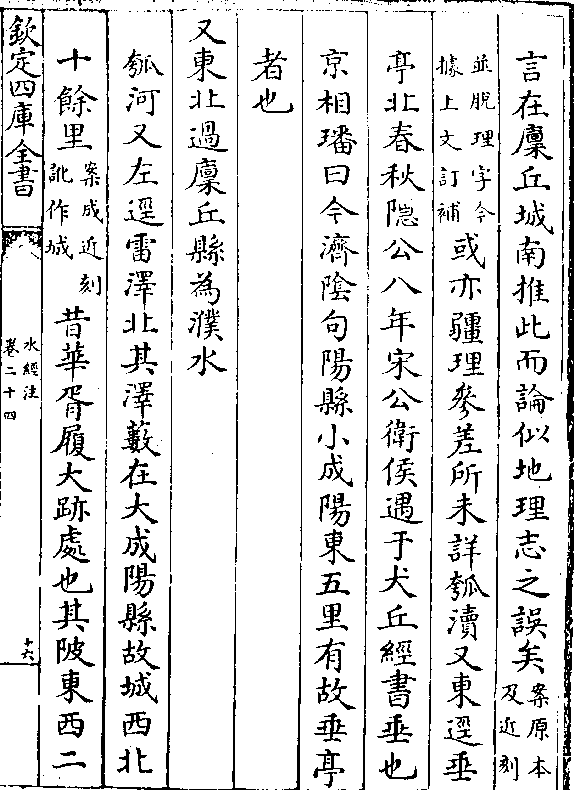 言在廩丘城南推此而論似地理志之誤矣案原本及近刻
並脱理字今據上文訂補或亦疆理參差所未詳瓠瀆又東逕垂
亭北春秋隠公八年宋公衛侯遇于犬丘經書垂也
京相璠曰今濟陰句陽縣小成陽東五里有故垂亭
者也
又東北過廩丘縣為濮水
瓠河又左逕雷澤北其澤藪在大成陽縣故城西北
十餘里案成近刻訛作城昔華胥履大跡處也其陂東西二
欽定四庫全書
水經注
卷二十四
十六